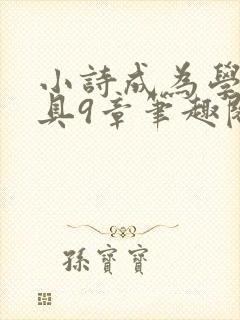 小詩成為學
具9章筆趣閣
孫寶寶